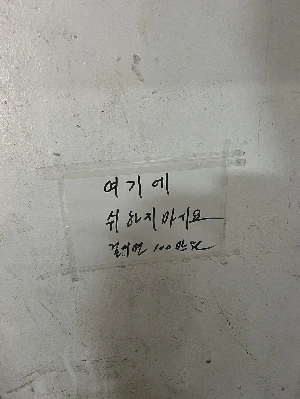 여기에
쉬하지마세요
걸이면 100만원